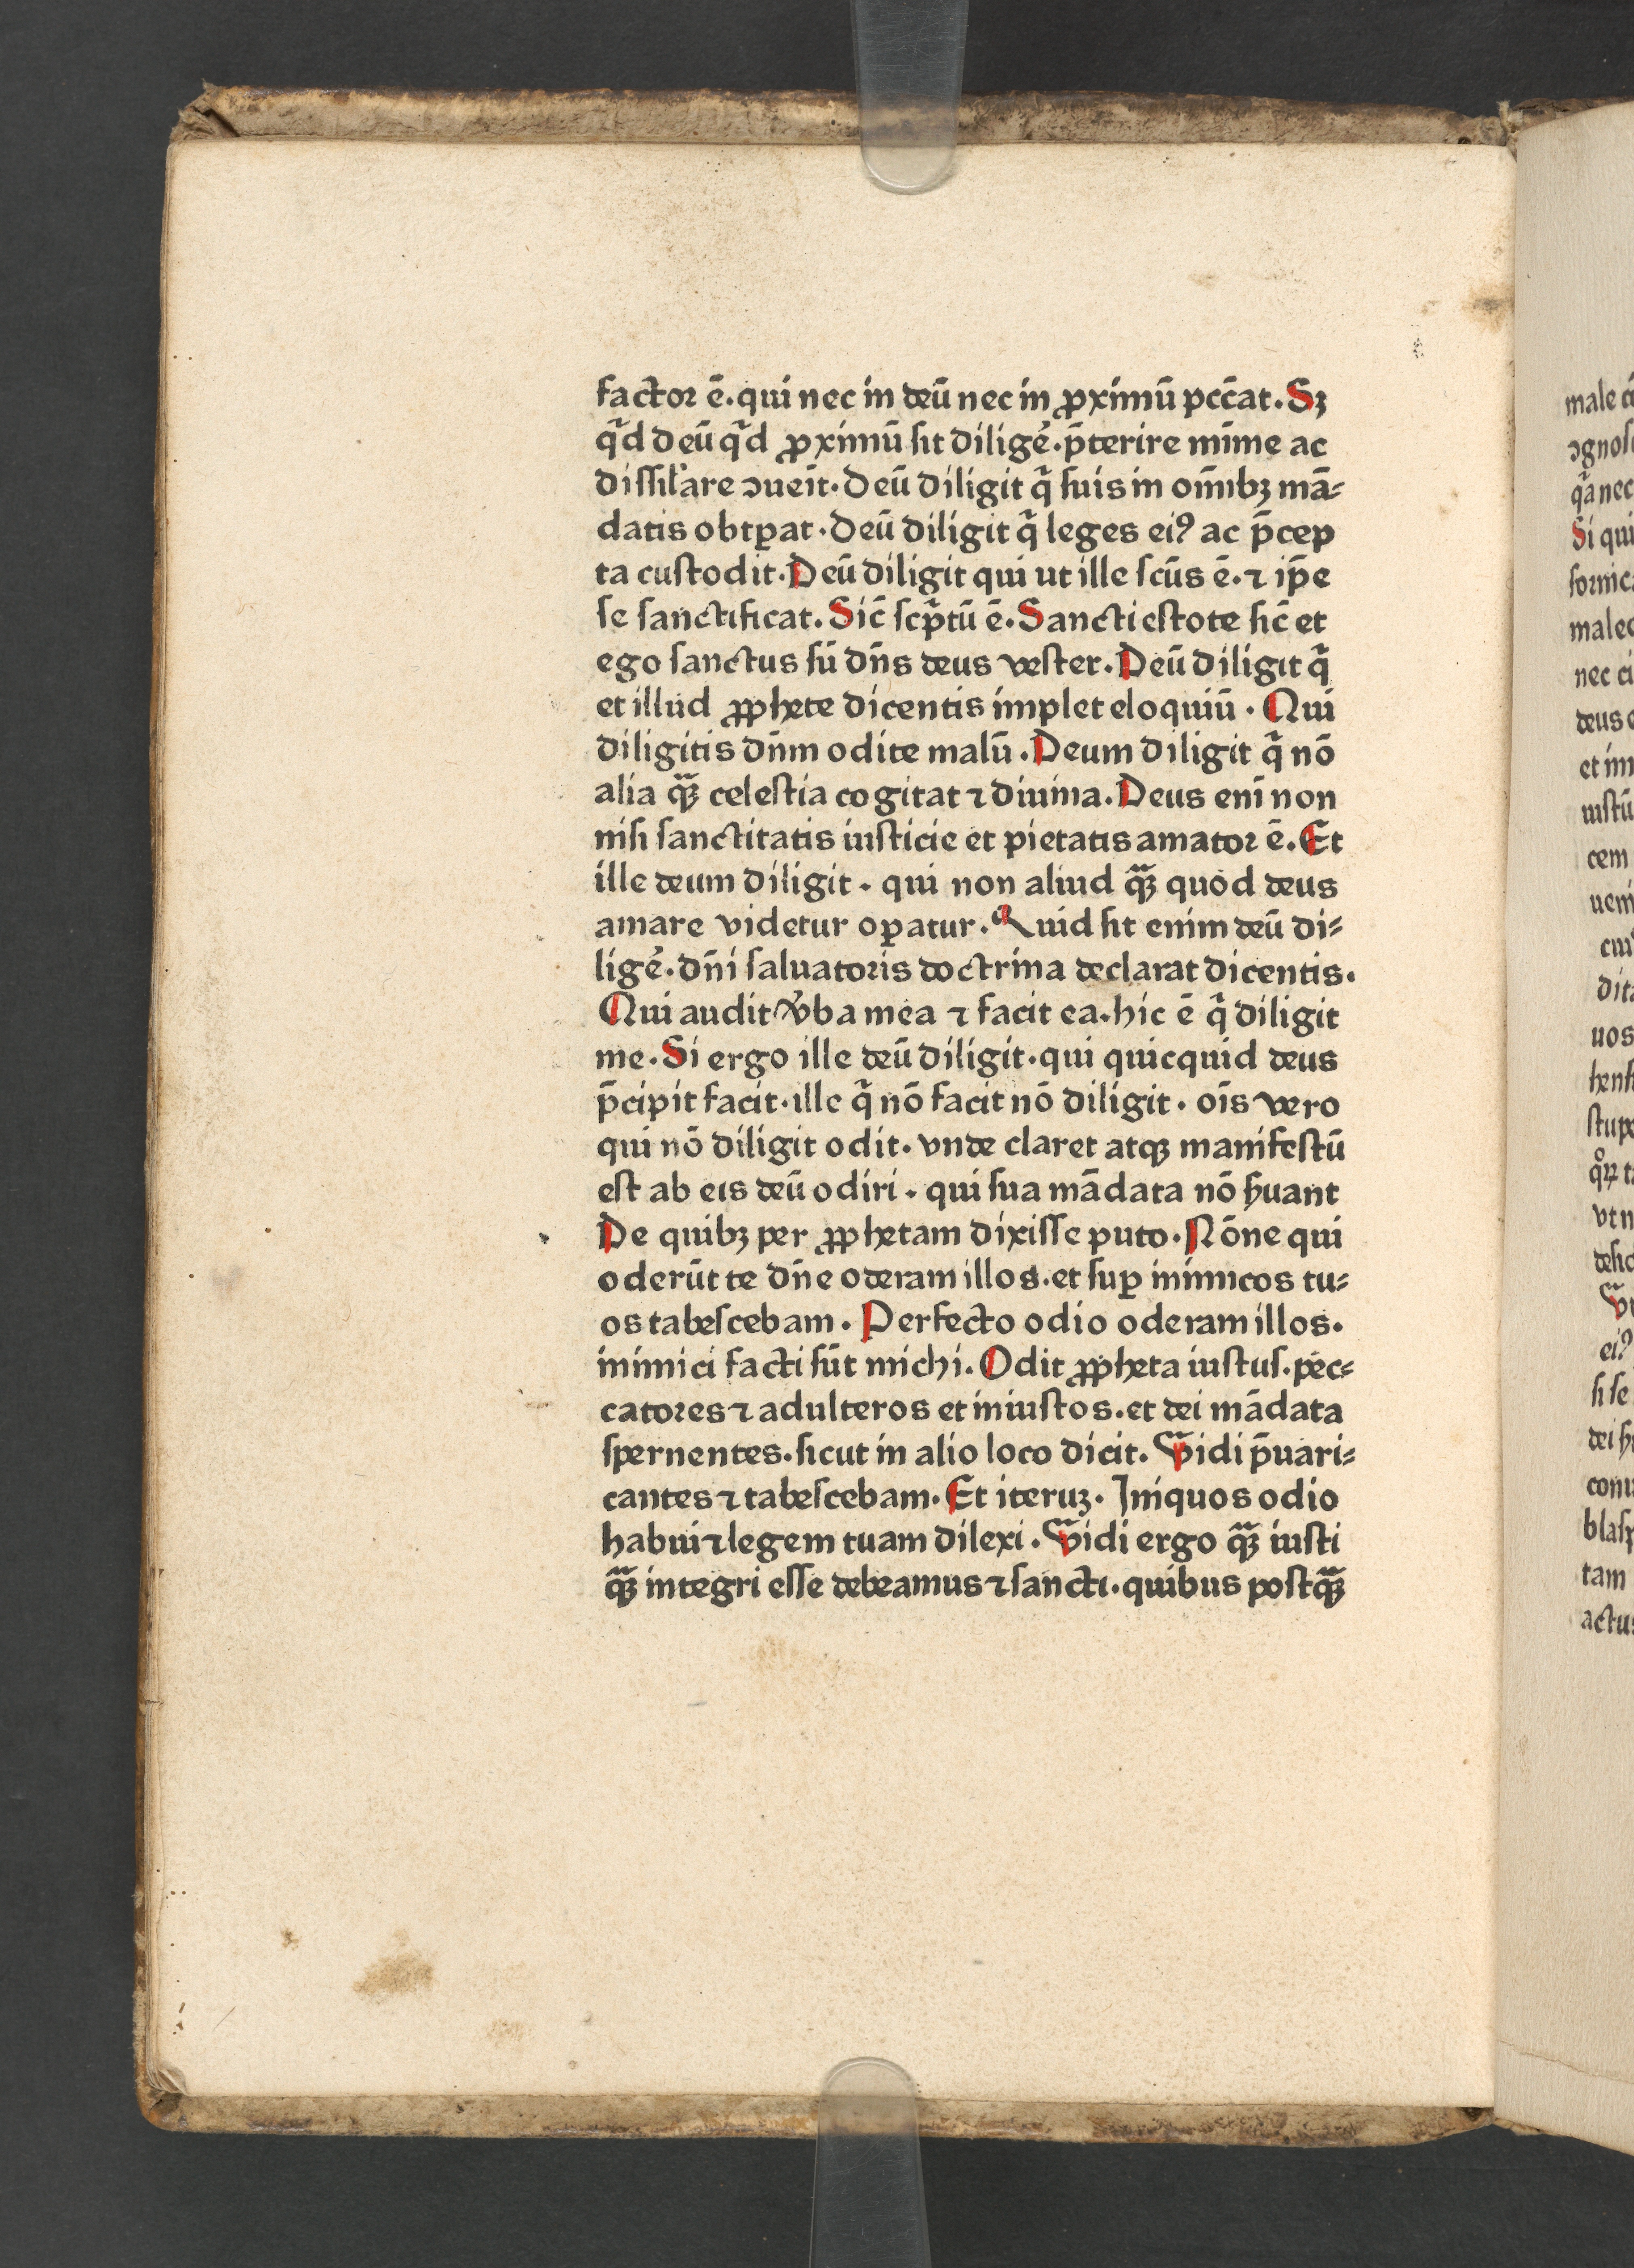 factor ē. qui nec in deū nec in ꝓximū pcc̄at. Sꝫ
qͣd deū qͣd ꝓximū sit diligē. p̄terire mīme ac
dissil̓are ↄueīt. Deū diligit qͥ suis in om̄ibꝫ mā⸗
datis obtꝑat. Deū diligit qͥ leges eiꝰ ac p̄cep
ta custodit. Deū diligit qui ut ille scūs ē. ⁊ ip̄e
se sanctificat. Sic̄ scͥptū ē. Sancti estote sic̄ et
ego sanctus sū dn̄s deus vester. Deū diligit qͥ
et illud ꝓphete dicentis implet eloquiū. Qui
diligitis dn̄m odite malū. Deum diligit qͥ nō
alia qͣꝫ celestia cogitat ⁊ diuina. Deus eni non
nisi sanctitatis iusticie et pietatis amator ē. Et
ille deum diligit. qui non aliud qͣꝫ quod deus
amare videtur oꝑatur. Quid sit enim deū di⸗
ligē. dn̄i saluatoris doctrina declarat dicentis.
Qui audit v̓ba mea ⁊ facit ea. hic ē qͥ diligit
me. Si ergo ille deū diligit. qui quicquid deus
p̄cipit facit. ille qͥ nō facit nō diligit. oīs vero
qui nō diligit odit. vnde claret atqꝫ manifestū
est ab eis deū odiri. qui sua mādata nō ẜuant
De quibꝫ per ꝓphetam dixisse puto. Nōne qui
oderūt te dn̄e oderam illos. et suꝑ inimicos tu⸗
os tabescebam. Perfecto odio oderam illos.
inimici facti sūt michi. Odit ꝓpheta iustus. pec⸗
catores ⁊ adulteros et iniustos. et dei mādata
spernentes. sicut in alio loco dicit. Vidi p̄uari⸗
cantes ⁊ tabescebam. Et iteruꝫ. Iniquos odio
habui ⁊ legem tuam dilexi. Vidi ergo qͣꝫ iusti
qͣꝫ integri esse debeamus ⁊ sancti. quibus postqͣꝫ